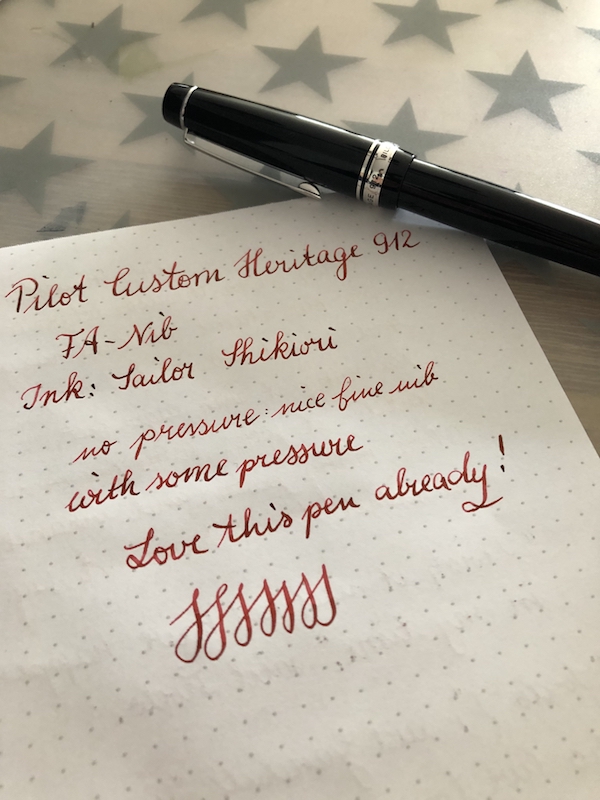 Pilot Custom Heritage 912
FA-Nib
Ink: Sailor Shikiori
no pressure: nice fine nib
with some pressure
Love this pen already!